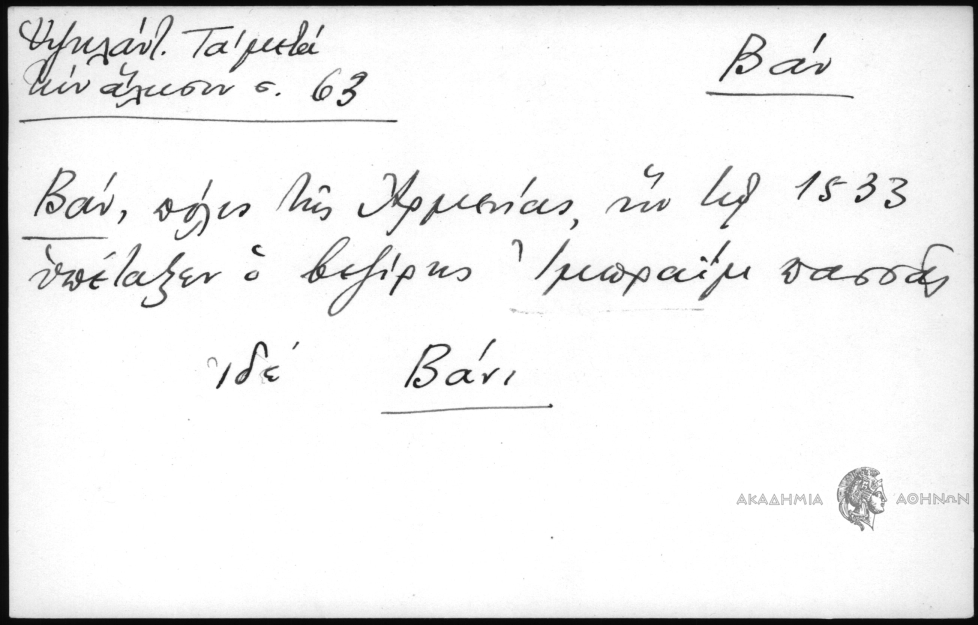 Ὑψηλάντ. Τά μετά
τήν ἅλωσιν σ. 63
Βάν
Βάν, πόλις τῆς Ἀρμενίας, ἥν τῷ 1533
ὑπέταξεν ὁ βεζίρης Ἰμπραΐμ πασσᾶς
ἰδέ Βάνι
ΑΚΑΔΗΜΙΑ ΑΘΗΝΩΝ